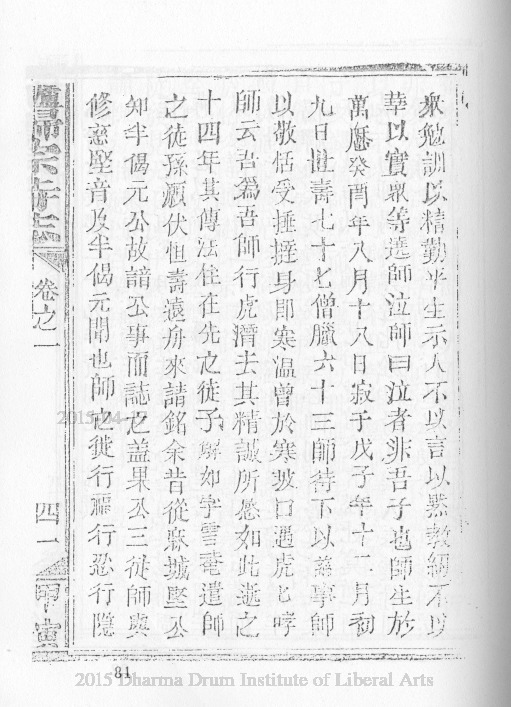 衆勉訓以精勤半生示人不以言以黙教網不以
華以實衆等遶師泣師曰泣者非吾子也師生於
萬曆癸酉年八月十八日寂于戊子年十二月初
九日世壽七十七僧臘六十三師待下以慈事師
以敬恬受捶挃身即寒温曾於寒坡口遇虎匕哮
師云吾爲吾師行虎潛去其精誠所感如此逝之
十四年其傳法住在先之徒予 如字雪菴遣師
之徒孫願伏恒壽遠舟來請銘余昔從麻城堅公
知半偈元公故諳公事而誌之葢果公三從師與
修慈堅音及半偈元開也師之徒行 行忍行隱
卷之一
四一
甲寅
81
2015-04-17
2015 Dharma Drum Institute of Liberal Arts